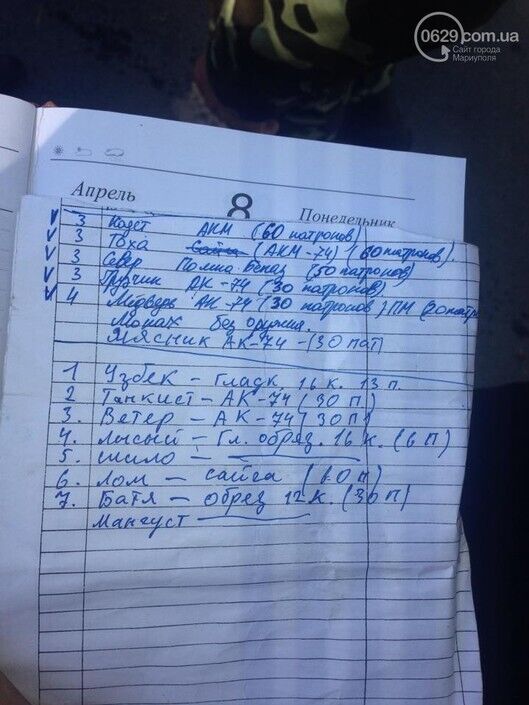 0629.com.ua
Сайт города
Мариуполя
Апрель 8 Понедельник
3 Кадет АКМ (60 патронов)
3 Тоха Сайга (АКМ-74) (60 патронов)
3 Север (50 патронов)
3 Грузчик АК-74 (30 патронов)
4 Медведь АК-74 (30 патронов) ПМ (20 патр
Монах без оружия.
Мясник АК-74 - (30 пат)
1 Узбек - гладк. 16 к. 13 п.
2 Танкист - АК-74 (30 п)
3. Ветер - АК-74 (30 п)
4. Лысый - Гл. обрез. 16 к. (6 п)
5. Шило -
6. Лом - сайга (10 п)
7. Батя - обрез 12 к. (30 п)
Мангуст